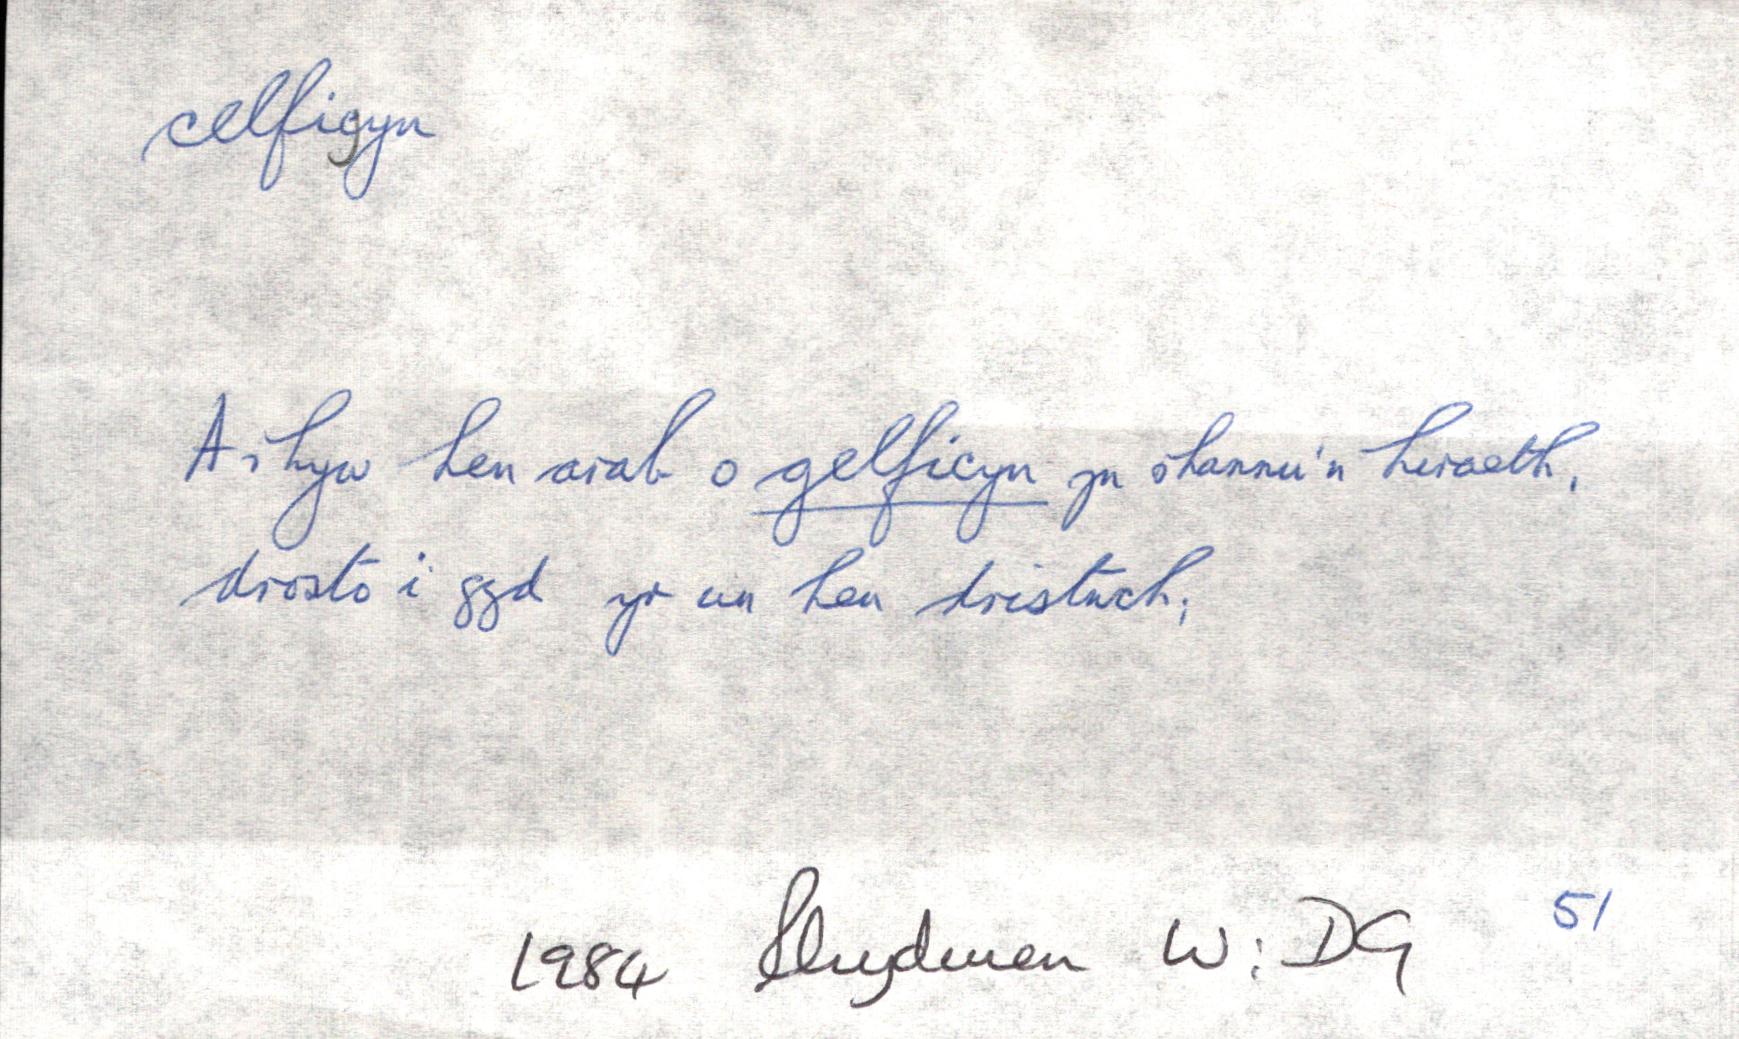 celficyn
A rhyw hen arab o gelficyn yn rhannu'n hiraeth,
drosto i gyd yr un hen dristwch;
51
1984 Rhydwen W: DG